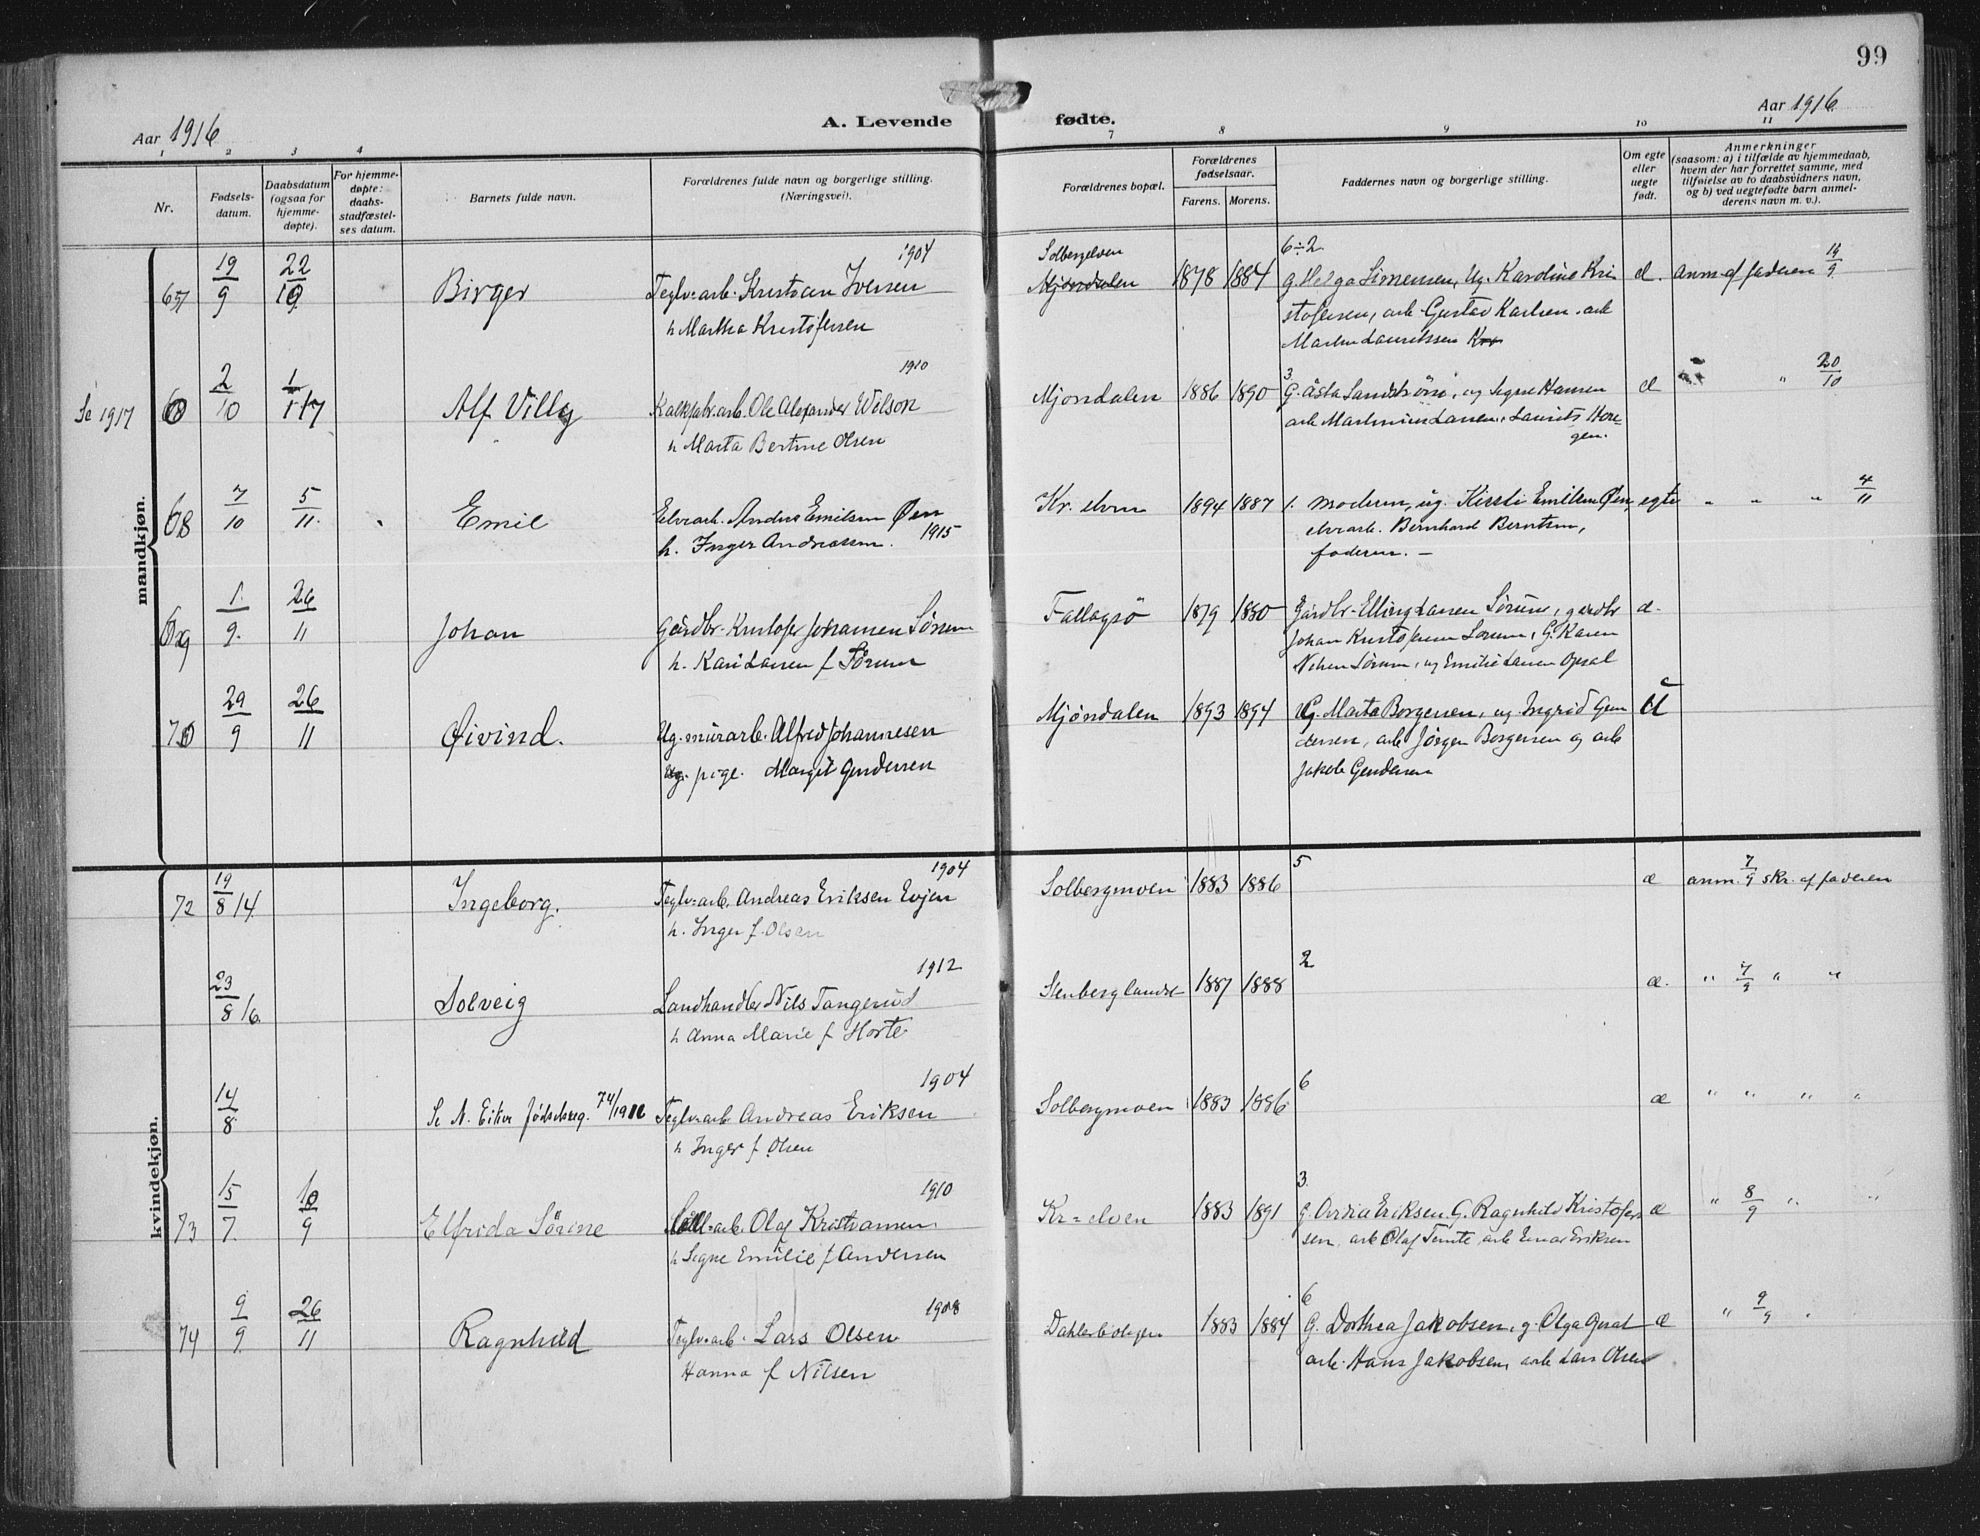 99
Aar 1916
A. Levende fødte.
Aar 1916
1 2 3 4 7 8 9 10 11
Nr.
Fødsels-
datum.
Daabsdatum
(ogsaa for
hjemme-
døpte).
For hjemme-
døpte:
daabs-
stadfæstel-
ses datum.
Barnets fulde navn.
Forældrenes fulde navn og borgerlige stilling.
(Næringsvei).
Forældrenes bopæl.
Forældrenes
fødselsaar.
Farens. Morens.
Faddernes navn og borgerlige stilling.
Om egte
eller
uegte
født.
Anmerkninger
(saasom: a) i tilfælde av hjemmedaab,
hvem der har forrettet samme, med
tilføielse av to daabsvidners navn,
og b) ved uegtefødte barn anmel-
derens navn m. v.).
mandkjøn.
67 19/9 22/10 Birger
1904
Teglv.arb. Kristian Iversen
h Martha Kristofersen
Solbergelven
Mjøndalen 1878 1884
6÷2
G. Helga Simensen, Ug. Karoline Kri
stofersen, arb. Gustav Karlsen. arb
Martin Lauritssen
æ. anm. af faderen 14/9
Se 1917 2/10 1/1 17 Alf Villy
1910
Kalkfabr.arb. Ole Alexander Wilson
h Marta Bertine Olsen
Mjøndalen 1886 1890
3
G. Åsta Sandstrøm, ug Signe Hansen
arb Martinius Larsen, Laurits
æ " 20/10
68 7/10 5/11. Emil
Elvearb. Anders Emilsen Øen
h. Inger Andreasen. 1915
Kr. elven 1894 1887
1. moderen, ug. Kirsti Emilsen Øen,
elvearb. Bernhard Berntsen,
faderen. —
egte " " " 4/11
69 1/9. 26/11 Johan
Gårdbr. Kristofer Johansen Sörum
h. Kari Larsen f Sörum
Fallagsö 1879 1880
Gårdbr. Elling Larsen Sörum, gårdbr
Johan Kristofersen Sörum, G. Karen
Nilsen Sörum, ug Emilie Larsen Opsal
æ.
70 29/9 26/11 Øivind.
Ug. murarb. Alfred Johannesen
Ug. pige. Margit Gundersen
Mjöndalen 1893 1894
Ug. Marta Borgersen, ug Ingrid Gun
dersen, arb Jörgen Borgersen og arb
Jakob Gundersen
U
kvindekjøn.
72 19/8 14 Ingeborg.
1904
Teglv.arb. Andreas Eriksen Evjen
h. Inger f. Olsen
Solbergmoen 1883 1886
5
æ anm. 7/9 skr. af faderen
23/8 16 Solveig
1912
Landhandler Nils Tangerud
h Anna Marie f Horte
Stenberglandet 1887 1888
2
æ. " 7/9 " "
14/8 Se N. Eiker Födselsreg. 74/1916
1904
Teglv.arb Andreas Eriksen
h Inger f Olsen
Solbergmoen 1883 1886
6
æ " " " "
73 15/7 10/9 Elfrida Sörine
1910
Cell.arb. Olaf Kristiansen
h Signe Emilie f Andersen
Kr=elven 1883 1891
3.
G. Ovidia Eriksen. G. Ragnhild Kristofer
sen, arb Olaf Temte arb Einar Eriksen
æ " 8/9 " "
74 9/9. 26/11 Ragnhild
1908
Teglv.arb. Lars Olsen
Hanna f Nilsen
Dahlerboligen 1883 1884
6
G. Dorthea Jakobsen, g. Olga
arb. Hans Jakobsen, arb Lars Olsen
æ " 9/9 "